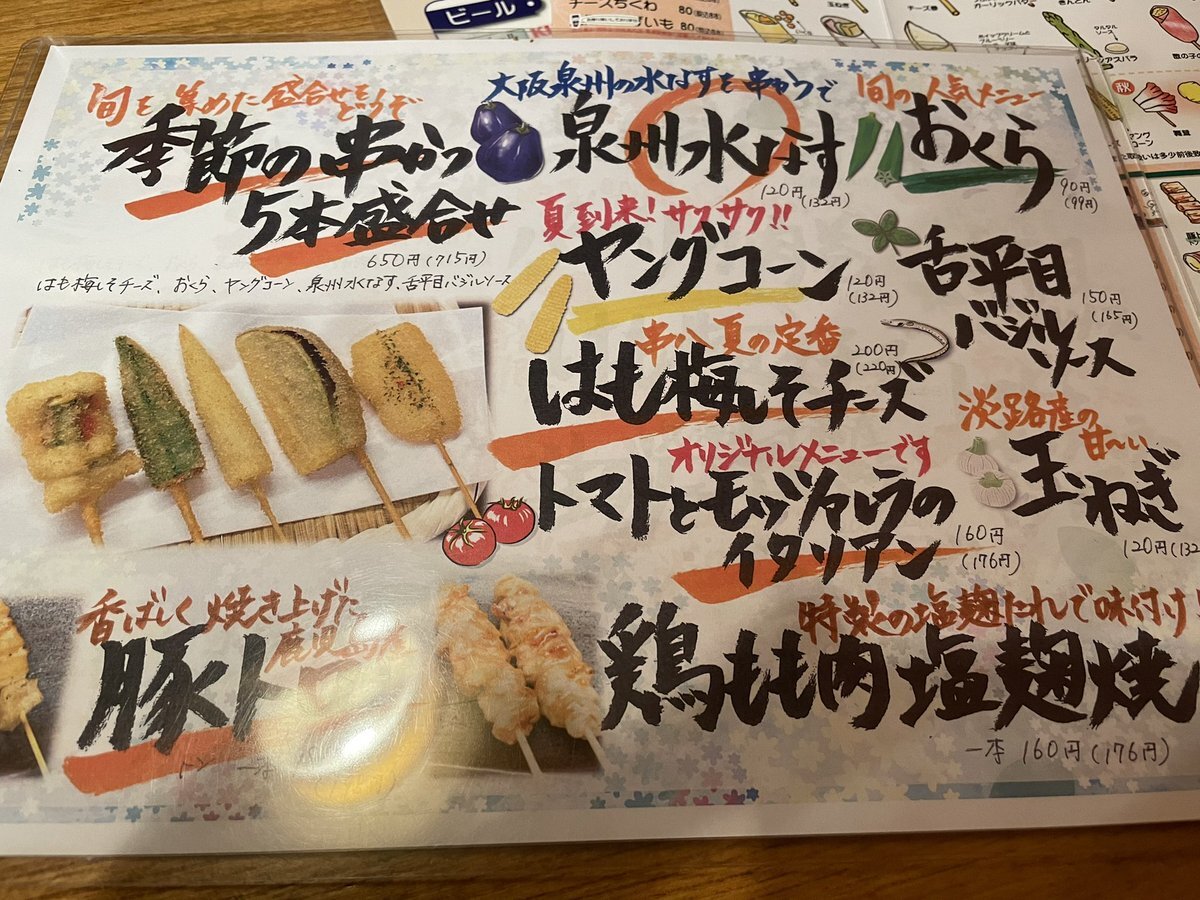 ビール・
チーズちくわ
80
いも 80
玉ねぎ
チーズ巻
ガーリックバター
きんとん
タルタル
ソース
グリーンアスパラ
秋
旬を集めた盛合せを
どうぞ
季節の串かつ
5本盛合せ
650円(715円)
はも梅しそチーズ、おくら、ヤングコーン、泉州水なす、舌平目バジルソース
大阪泉州の水なすを串かつで
泉州水なす
120円(132円)
旬の人気メニュー
おくら
90円
(99円)
夏到来!サクサク!!
ヤングコーン
120円
(132円)
舌平目
バジル
ソース
150円
(165円)
串八夏の定番
はも梅しそチーズ
200円
(220円)
オリジナルメニューです
トマトとモッツァレラの
イタリアン
160円
(176円)
淡路産の
甘〜い
玉ねぎ
120円(132
香ばしく焼き上げた
鹿児島産
豚トロ
特製の塩麹たれで味付け
鶏もも肉塩麹焼
一本 160円(176円)